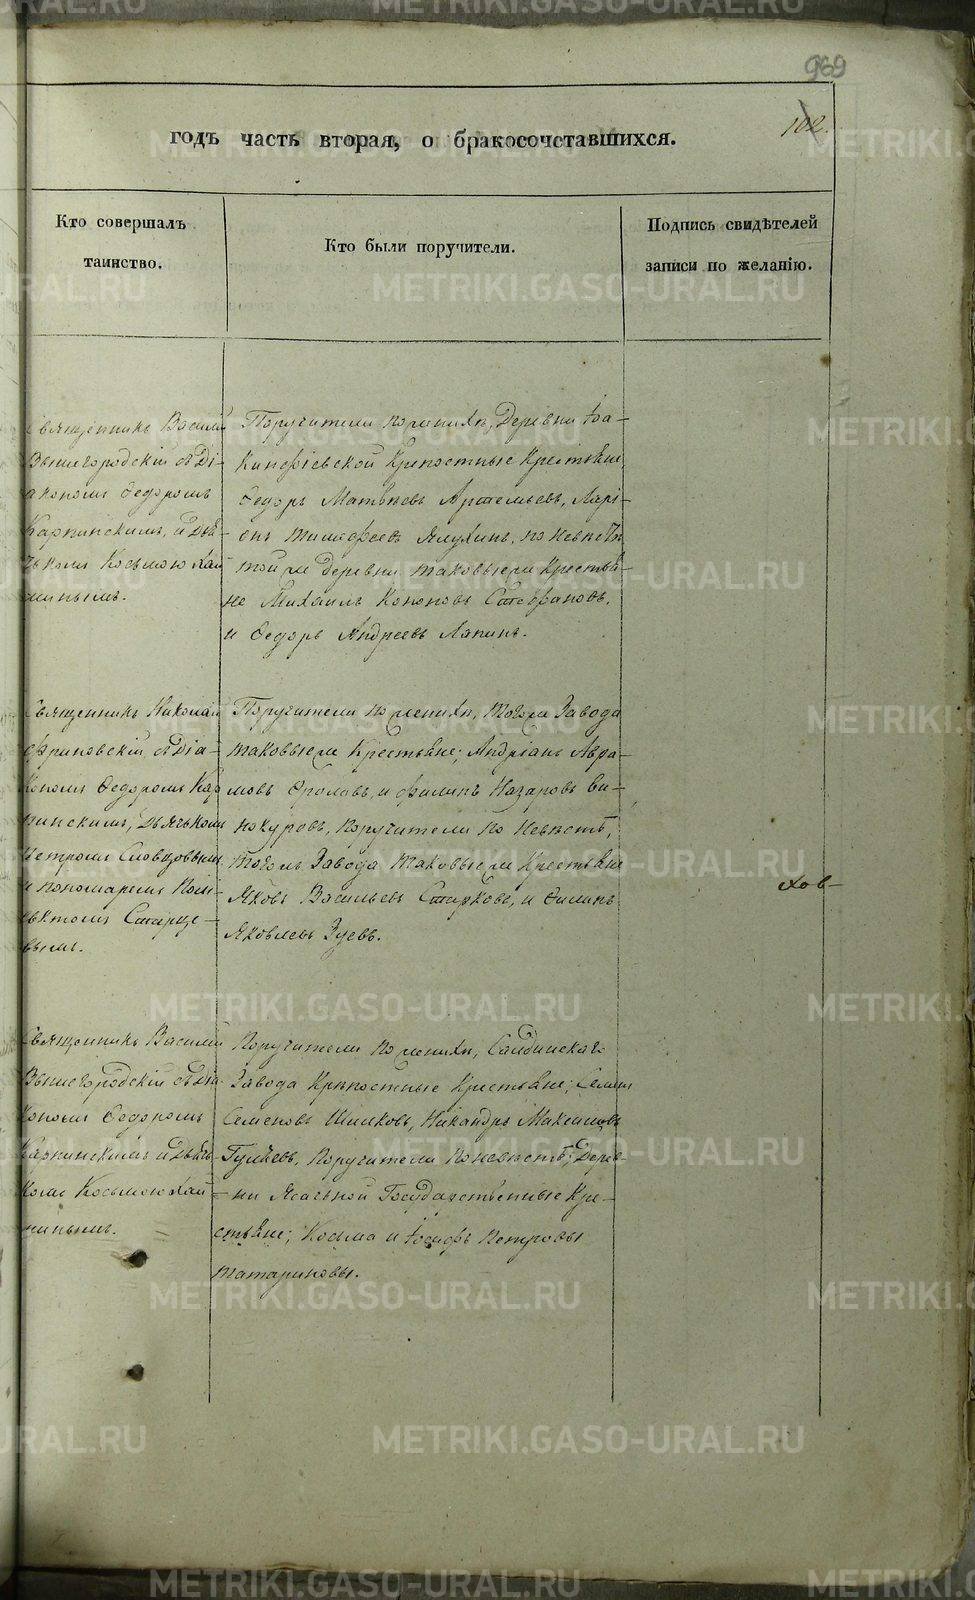 969
102.
годъ часть вторая, о бракосочставшихся.
Кто совершалъ
таинство.
Кто были поручители.
Подпись свидѣтелей
записи по желанію.
Священникъ Василій
Вышегородскій съ Ді-
акономъ Ѳедоромъ
Карпинскимъ, и Дья-
чькомъ Косьмою Хал
Поручители по женихѣ, Деревни Іоа-
кинфіевской Крепостные Крестьяне
Ѳедоръ Матвѣевъ Артемьевъ, Ларі-
онъ Тимофеевъ Ялухинъ, по невѣстѣ
той же деревни таковыеже крестья-
не Михаилъ Кононовъ Стефановъ,
и Ѳедоръ Андреевъ Ляпинъ.
Священникъ Николай
съ Діа-
кономъ Ѳедоромъ Кар
пинскимъ, Дьячькомъ
Петромъ Словцовымъ
и пономаремъ
Старце-
вымъ.
Поручители по женихѣ, тогоже Завода
таковыеже Крестьяне; Андріанъ Авра-
мовъ Фроловъ, и Филипъ Назаровъ Ви-
нокуровъ, поручители по невѣстѣ,
тогожъ Завода таковыеже Крестьяне
Яковъ Васильевъ Старковъ, и Филипъ
Яковлевъ Зуевъ.
хов-
Священникъ Василій
Вышегородскій съ Діа-
кономъ Ѳедоромъ
Карпинскимъ и Дьячь-
комъ Косьмою Хал
Поручители по женихѣ, Салдинскаго
Завода Крѣпостные Крестьяне; Семенъ
Семеновъ Шишковъ, Никандръ Максимовъ
Гуляевъ, поручители по невѣстѣ; Дерев-
ни Ясашной Государственные Кре-
стьяне; Косьма и Іосифъ Петровы
Татариновы.
METRIKI.GASO-URAL.RU